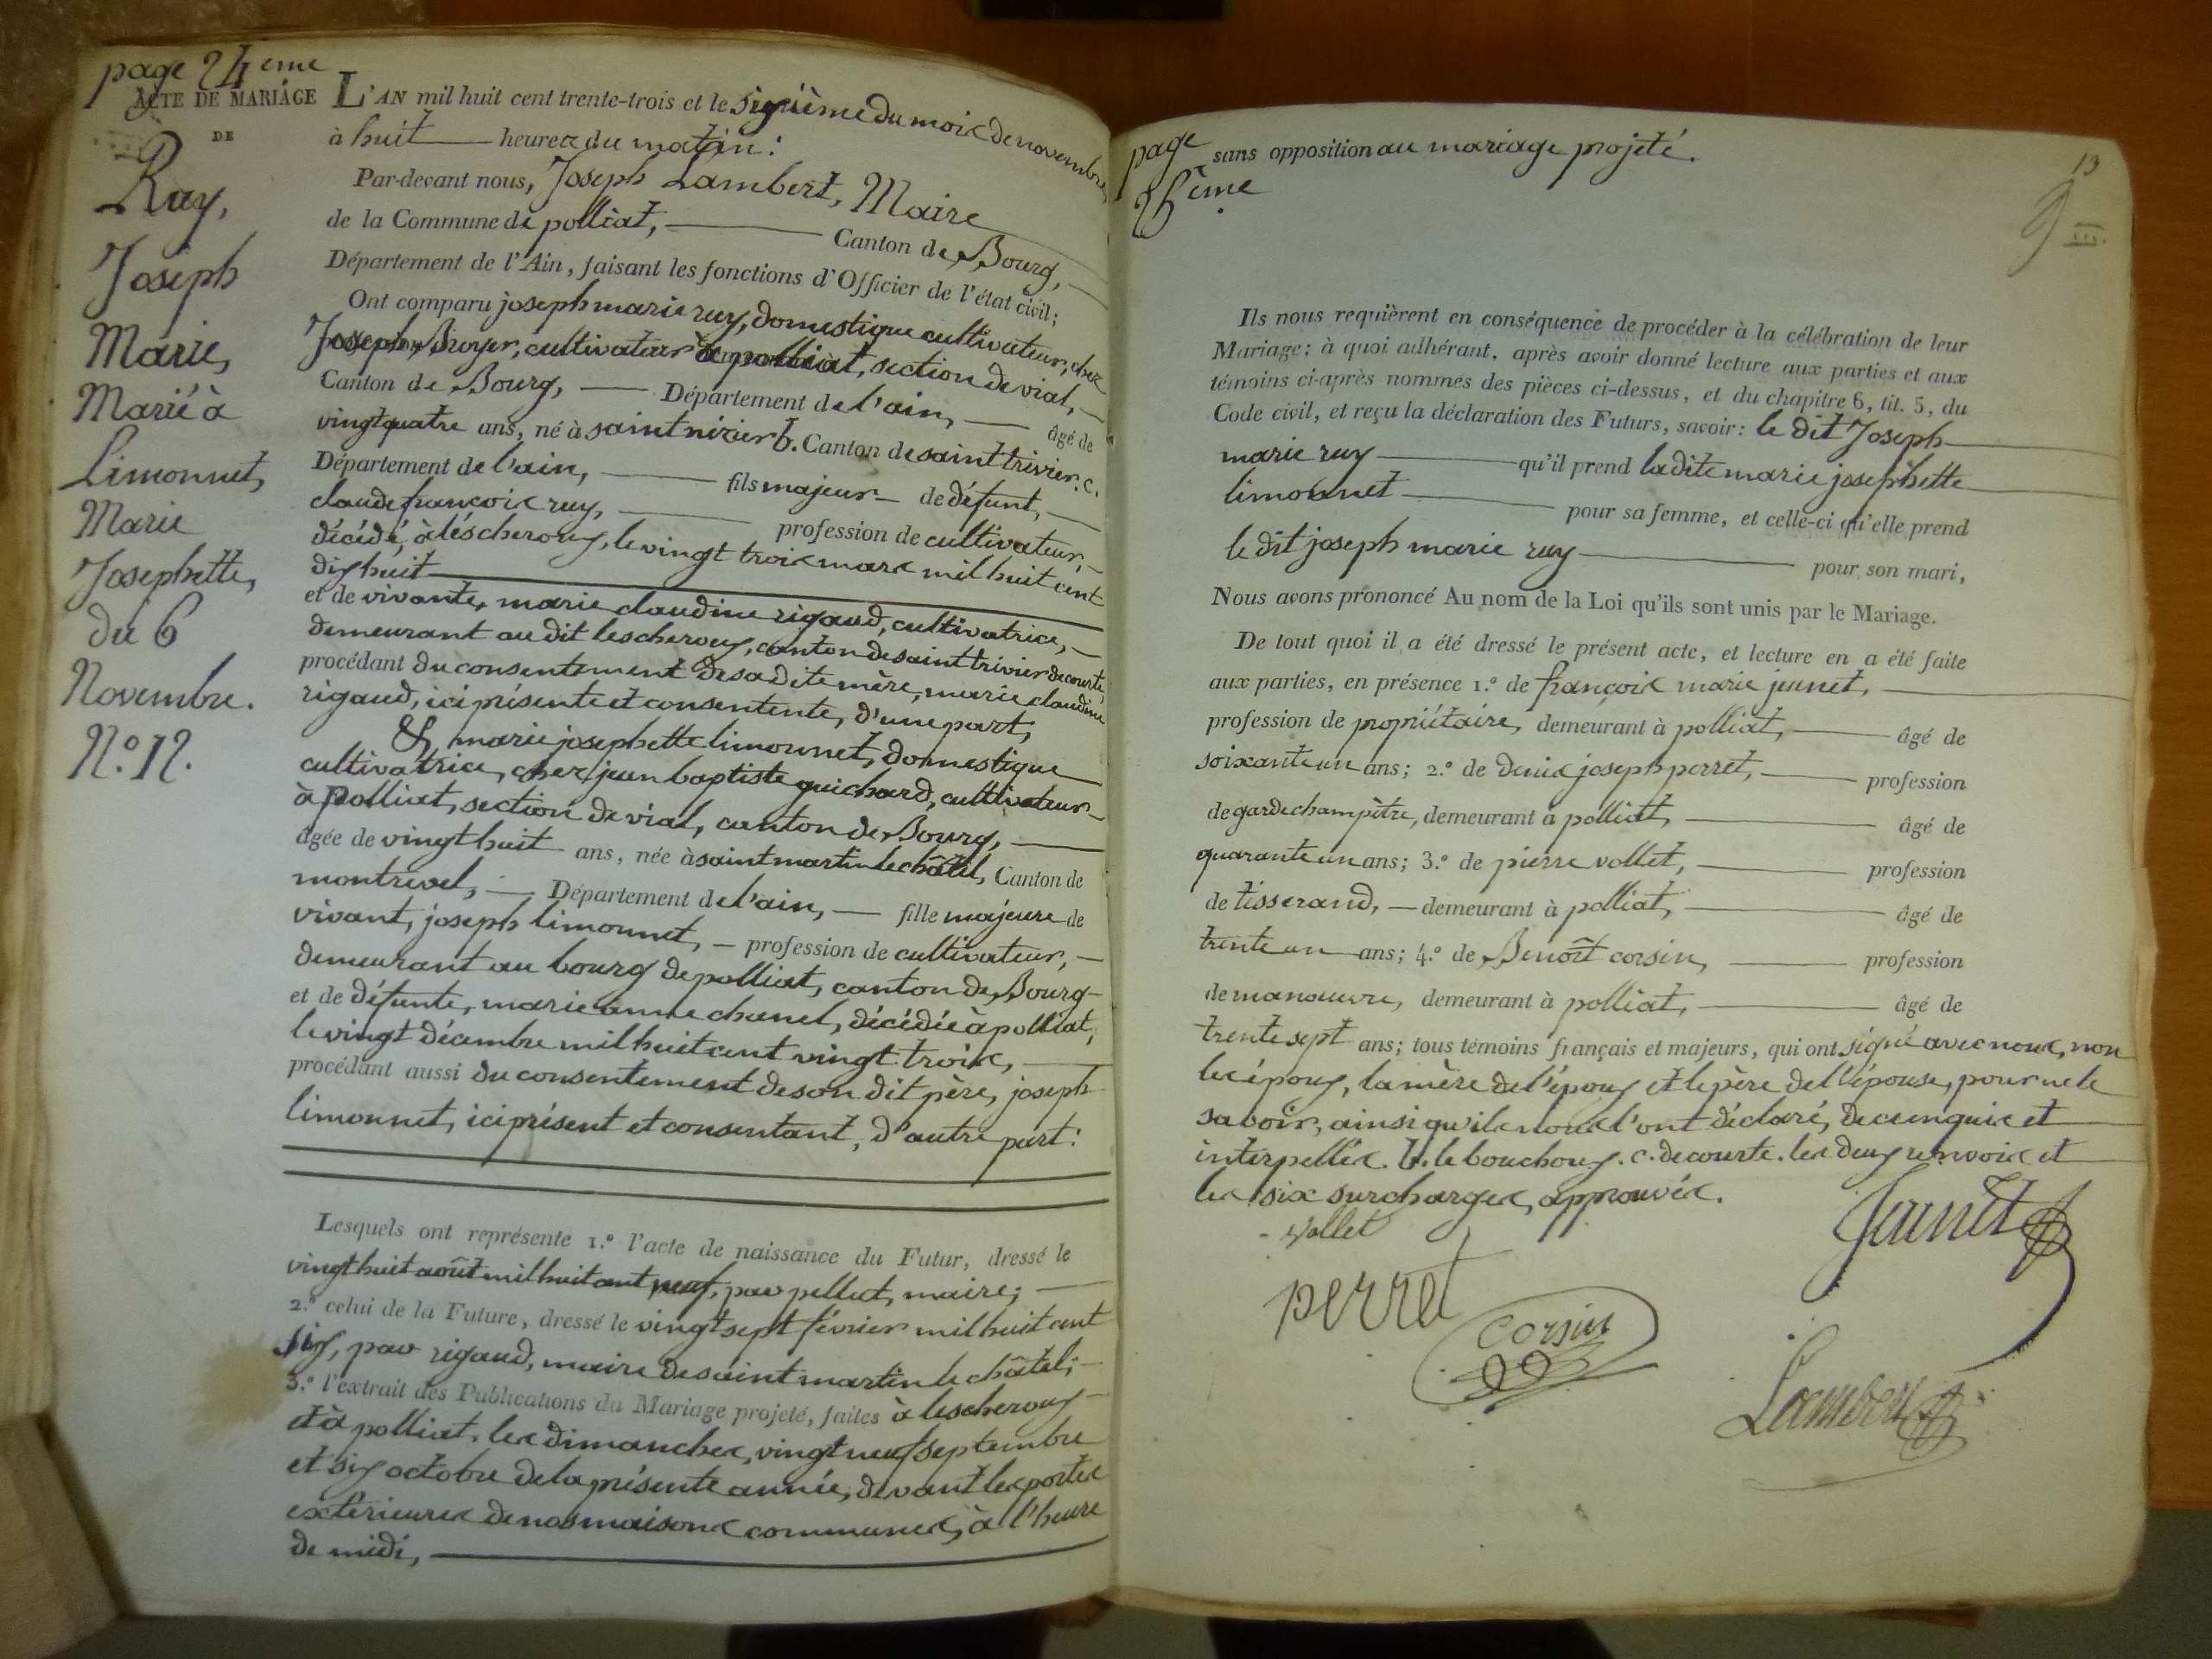 page 24 eme
ACTE DE MARIAGE
DE
Ray,
Joseph
Marie,
Marié à
Limonnet,
Marie
Josephette,
du 6
Novembre.
N.º 12.
L'AN mil huit cent trente-trois et le sixième du mois de novembre
à huit heures du matin:
Par-devant nous, Joseph Lambert, Maire
de la Commune de polliat, Canton de Bourg,
Département de l'Ain, faisant les fonctions d'Officier de l'état civil;
Ont comparu joseph marie ruy, domestique cultivateur, chez
Joseph Buyer, cultivateur à polliat, section de vial,
Canton de Bourg, Département de l'ain, âgé de
vingt quatre ans, né à saint nizier b. Canton de saint trivier. c.
Département de l'ain, fils majeur de défunt,
claude françois ruy, profession de cultivateur,
décédé, à léscheroux, le vingt trois mars mil huit cent
dix huit
et de vivante, marie claudine rigaud, cultivatrice,
demeurant au dit lescheroux, canton de saint trivier de courte,
procédant du consentement de sa dite mère, marie claudine
rigaud, ici présente et consentente, d'une part,
& marie josephette limonnet, domestique
cultivatrice, chez jean baptiste guichard, cultivateur
à Polliat, section de vial, canton de Bourg,
âgée de vingt huit ans, née à saint martin le châtel, Canton de
montrevel, Département de l'ain, fille majeure de
vivant, joseph limonnet, profession de cultivateur,
demeurant au bourg de polliat, canton de Bourg
et de défunte, marie anne chanel, décédée à polliat,
le vingt décembre mil huit cent vingt trois,
procédant aussi du consentement de son dit père, joseph
limonnet, ici présent et consentant, d'autre part:
Lesquels ont représente 1.º l'acte de naissance du Futur, dressé le
vingt huit août mil huit cent neuf, par pelluet, maire;
2.º celui de la Future, dressé le vingt sept février mil huit cent
six, par rigaud, maire de saint martin le châtel;
3.º l'extrait des Publications du Mariage projeté, faites à lescheroux
et à polliat, les dimanches, vingt neuf septembre
et six octobre de la présente année, devant les portes
extérieures de nos maisons communes, à l'heure
de midi,
page
25 ème
sans opposition au mariage projeté.
13
Ils nous requièrent en conséquence de procéder à la célébration de leur
Mariage; à quoi adhérant, après avoir donné lecture aux parties et aux
témoins ci-après nommés des pièces ci-dessus, et du chapitre 6, tit. 5, du
Code civil, et reçu la déclaration des Futurs, savoir: le dit Joseph
marie ruy qu'il prend la dite marie josephette
limonnet pour sa femme, et celle-ci qu'elle prend
le dit joseph marie ruy pour son mari,
Nous avons prononcé Au nom de la Loi qu'ils sont unis par le Mariage.
De tout quoi il a été dressé le présent acte, et lecture en a été faite
aux parties, en présence 1.º de françois marie jeunet,
profession de propriétaire, demeurant à polliat, âgé de
soixante un ans; 2.º de denis joseph perret, profession
de garde champêtre, demeurant à polliat, âgé de
quarante un ans; 3.º de pierre vollet, profession
de tisserand, demeurant à polliat, âgé de
trente un ans; 4.º de Benoît corsin, profession
de manœuvre, demeurant à polliat, âgé de
trente sept ans; tous témoins français et majeurs, qui ont signé avec nous, non
les époux, la mère de l'époux et le père de l'épouse, pour ne le
savoir, ainsi qu'ils nous l'ont déclaré, de ce enquis et
interpellés. b. le bouchoux. c. de courte. les deux renvois et
les six surcharges, approuvés.
vollet
Jeunet
perret
Corsin
Lambert